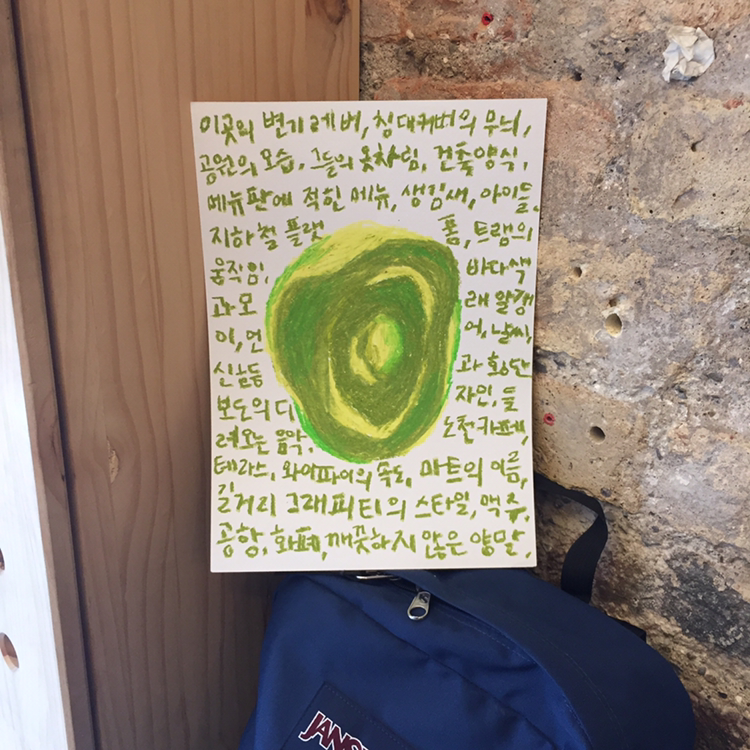 이곳의 변기레버, 침대커버의 무늬,
공원의 모습, 그들의 옷차림, 건축양식,
메뉴판에 적힌 메뉴, 생김새, 아이들,
지하철 플랫 폼, 트램의
움직임, 바다색
과 모 래 알갱
이, 언 어, 날씨,
신호등 과 횡단
보도의 디 자인, 들
려오는 음악, 노천카페,
테라스, 와이파이의 속도, 마트의 이름,
길거리 그래피티의 스타일, 맥주,
공항, 화폐, 깨끗하지 않은 양말,
JANS